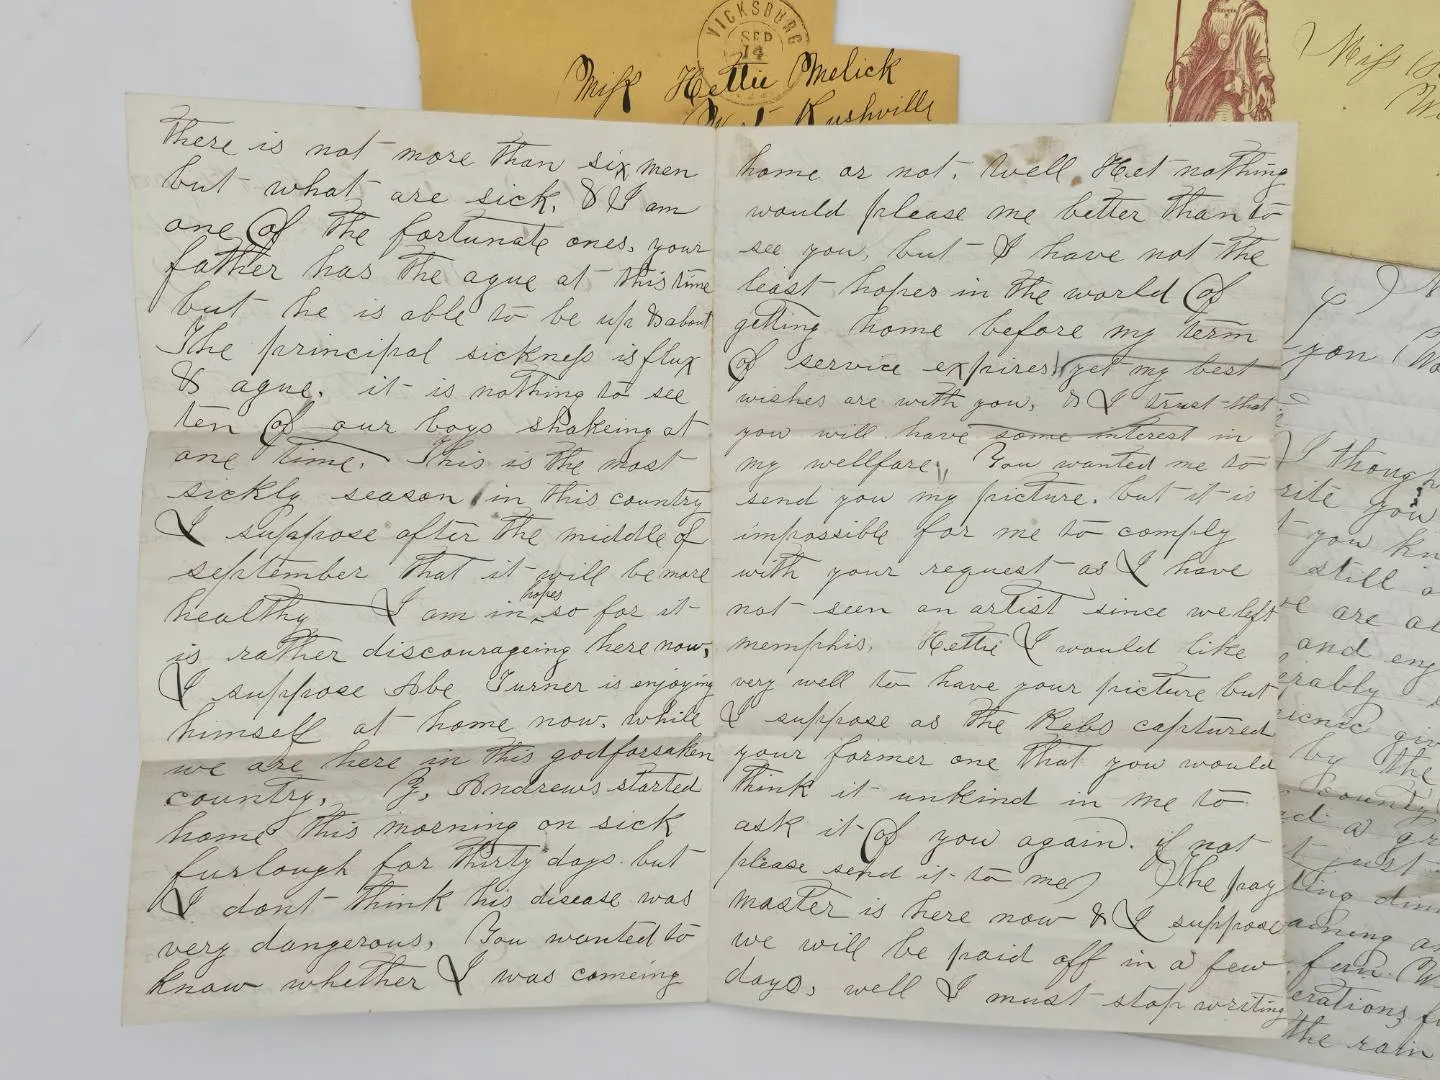 VICKSBURG
SEP
14
Miss Hettie Melick
West Rushville
Miss
there is not more than six men
but what are sick. & I am
one of the fortunate ones, your
father has the ague at this time
but he is able to be up & about
The principal sickness is flux
& ague. it is nothing to see
ten of our boys shakeing at
one time. This is the most
sickly season in this country
I suppose after the middle of
september that it will be more
healthy I am in hopes so for it
is rather discourageing here now,
I suppose Abe Turner is enjoying
himself at home now. while
we are here in this godforsaken
country, Andrews started
home this morning on sick
furlough for thirty days but
I dont think his disease was
very dangerous, You wanted to
know whether I was comeing
home or not. Well Het nothing
would please me better than to
see you, but I have not the
least hopes in the world of
getting home before my term
of service expires yet my best
wishes are with you, & I trust that
you will have some interest in
my wellfare, You wanted me to
send you my picture. but it is
impossible for me to comply
with your request as I have
not seen an artist since we left
memphis. Hettie I would like
very well to have your picture but
I suppose as the Rebs captured
your former one that you would
think it unkind in me to
ask it of you again. if not
please send it to me) The pay
master is here now & I suppose
we will be paid off in a few
days, well I must stop writing
you
I though
rite you
you kn
still
are
and en
erably
icnic giv
by the
County
a gr
just
ting din
aining a
fun. W
erations f
the rain